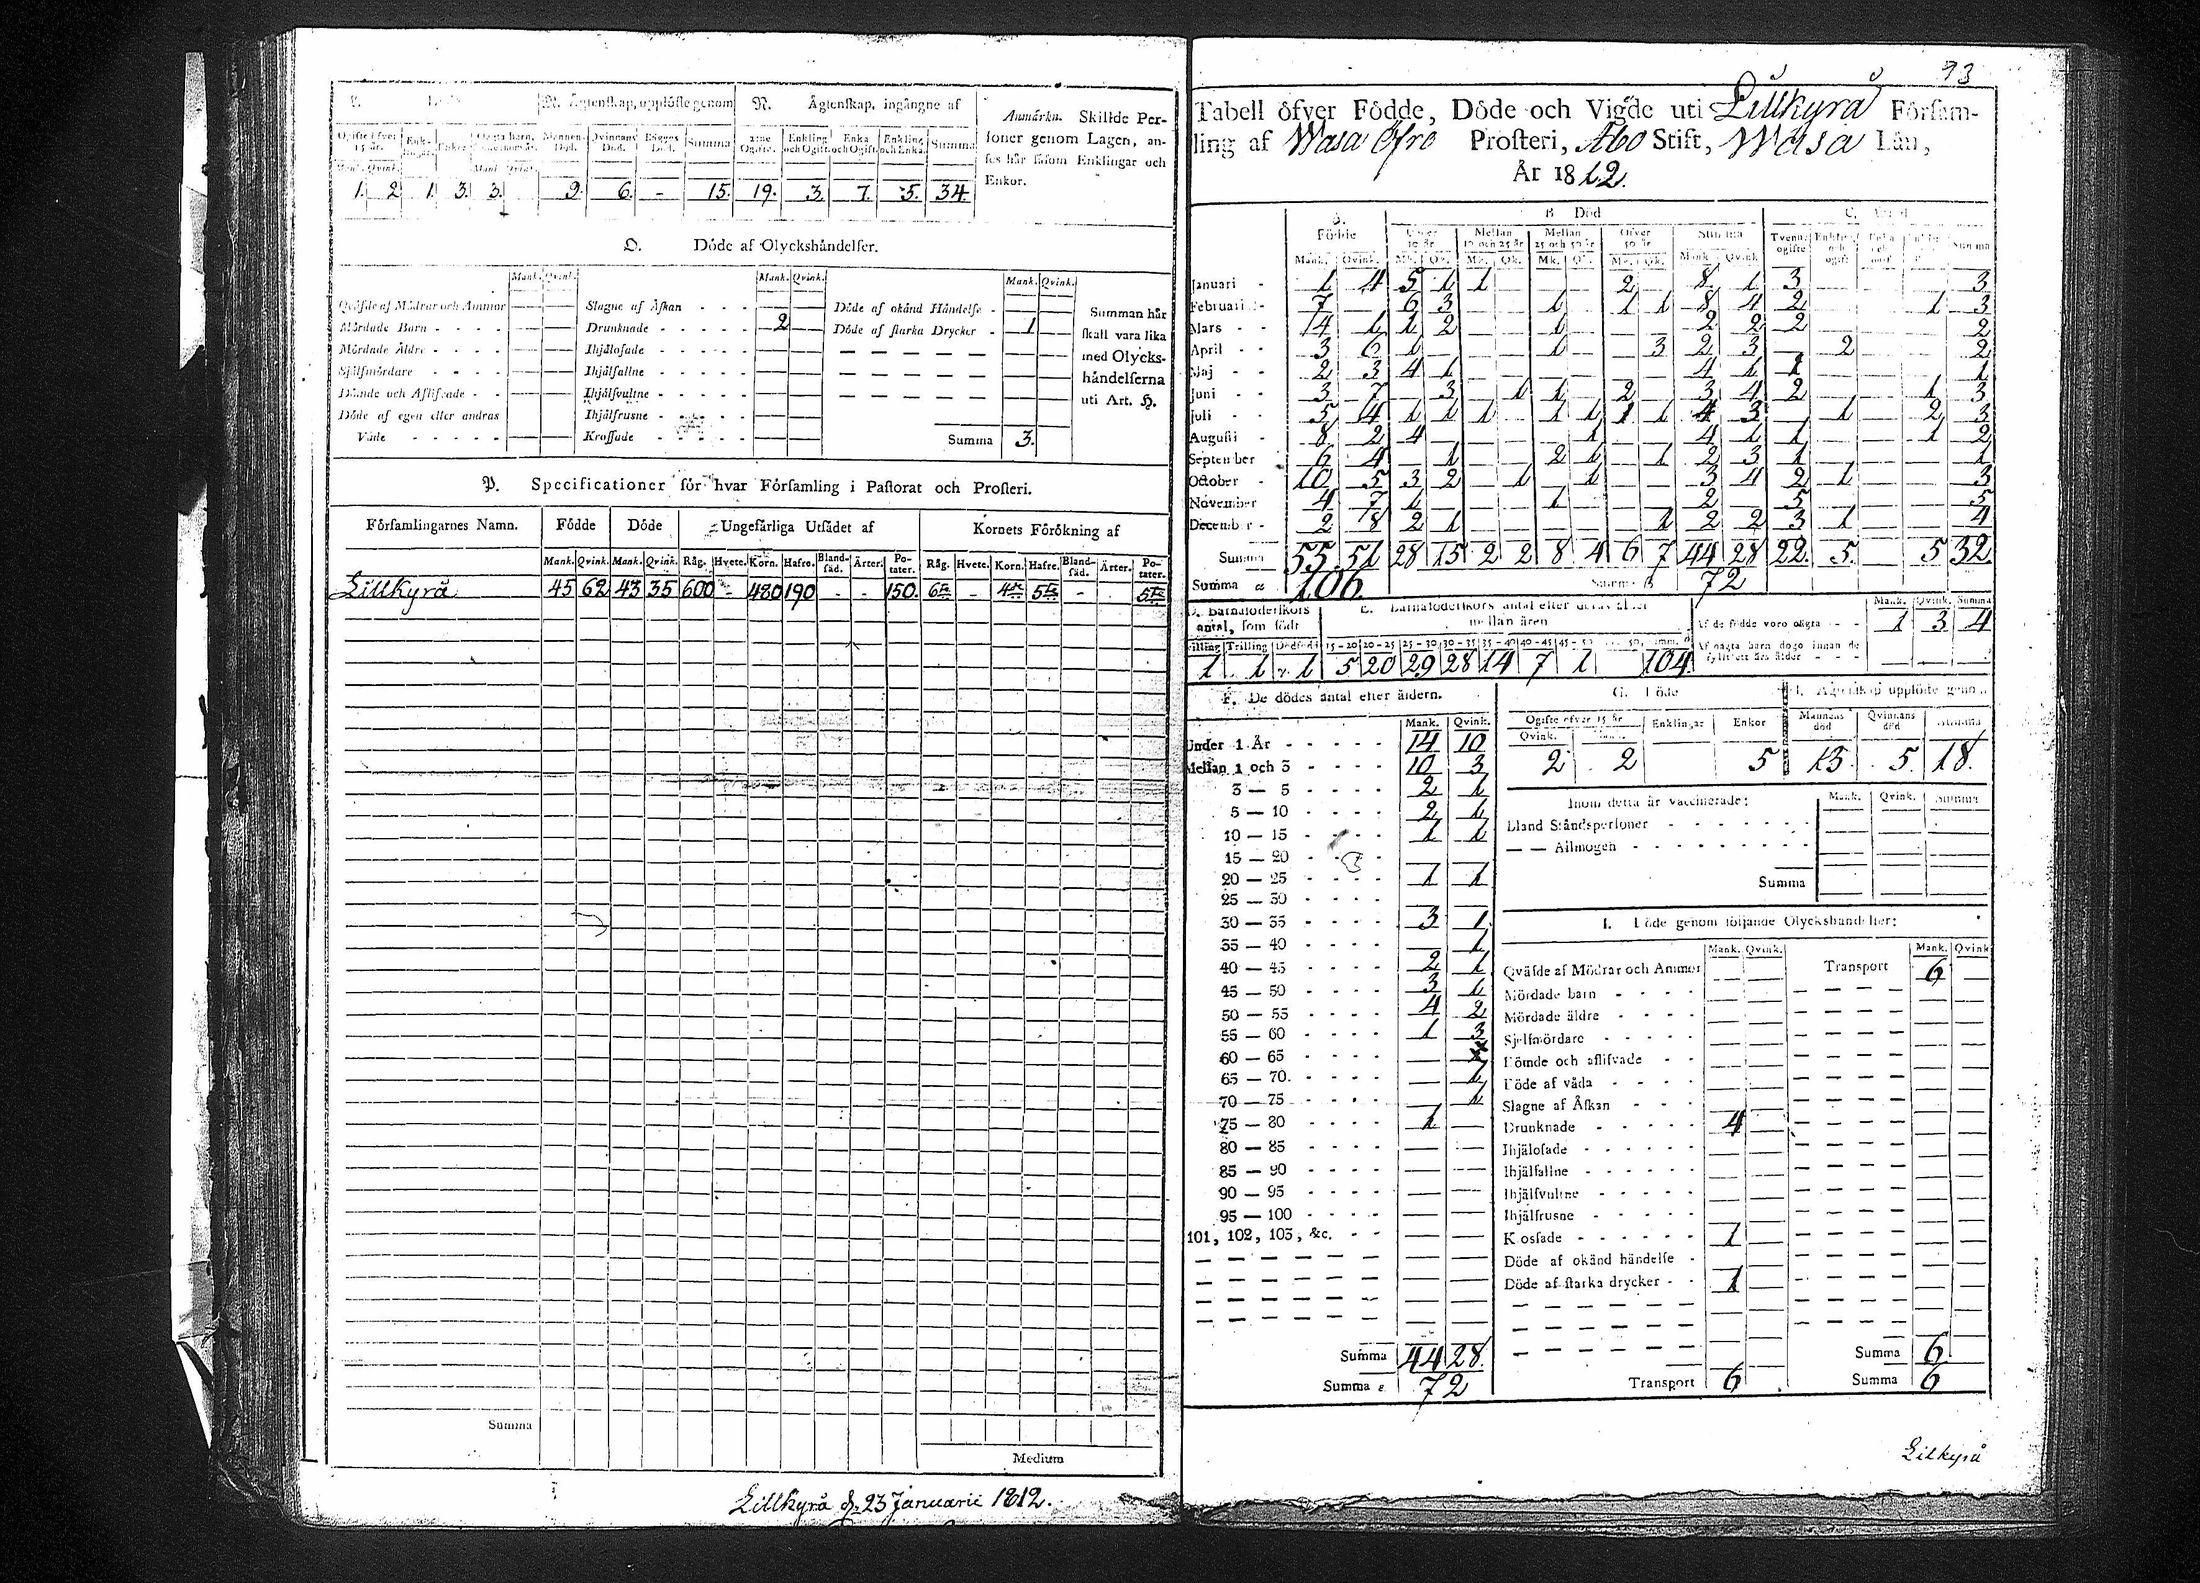 L. M. Ägtenskap, upplöste genom N. Ägtenskap, ingångne af
Ogifte öfver 15 år. Enklingar Enkor Oägta barn, Mannens Död. Qvinnans Död. Bägges Död. Summa 2:ne Ogifte. Enkling och Ogift Enka och Ogift Enkling och Enka. Summa
Mank. Qvink. Mank. Qvink.
1. 2 1. 3. 3. 9. 6. - 15. 19. 3. 7. 5. 34.
Anmärkn. Skillde Per-
soner genom Lagen, an-
ses här såsom Enklingar och
Enkor.
O. Döde af Olyckshändelser.
Mank. Qvink. Mank. Qvink. Mank. Qvink.
Qväfde af Mödrar och Ammor Slagne af Åskan - - - Döde af okänd Händelse -
Mördade Barn - - - - Drunknade - - - - - 2 Döde af starka Drycker - 1
Mördade Äldre - - - - Ihjälosade - - - - -
Sjelfmördare - - - - Ihjälfallne - - - - -
Dömde och Aflifvade - - Ihjälfvultne - - - - -
Döde af egen eller andras Ihjälfrusne - - - - -
Våde - - - - - Krossade - - - - - Summa 3.
Summan här
skall vara lika
med Olycks-
händelserna
uti Art. H.
P. Specificationer för hvar Församling i Pastorat och Prosteri.
Församlingarnes Namn. Födde Döde Ungefärliga Utsädet af Kornets Förökning af
Mank. Qvink. Mank. Qvink. Råg. Hvete. Korn. Hafre. Bland-säd. Ärter. Po-tater. Råg. Hvete. Korn. Hafre. Bland-säd. Ärter. Po-tater.
Lillkyrå 45 62 43 35 600 - 480 190 - - 150.
Summa
Medium
Lillkyrå d. 23 Januarii 1812.
93
Tabell öfver Födde, Döde och Vigde uti Lillkyrå Försam-
ling af Wasa Öfre Prosteri, Åbo Stift, Wasa Län,
År 1812.
Födde B Död C. Vigd
Under 10 år Mellan 10 och 25 år Mellan 25 och 50 år Öfver 50 år Summa Tvenne ogifte Enkling och ogift Summa
Mank. Qvink. Mk. Qk. Mk. Qk. Mk. Qk. Mk. Qk. Mank Qvink
Januari - 1 4 5 1 1 2 8 1 3 3
Februari - 7 - 6 3 1 1 1 8 4 2 1 3
Mars - - 14 1 1 2 1 2 2 2 2
April - - 3 6 1 1 3 2 3 2 2
Maj - - 2 3 4 1 4 1 1 1
Juni - - 3 7 3 1 1 2 3 4 2 1 3
Juli - - 5 4 1 1 1 1 1 1 1 4 3 1 2 3
Augusti - 8 2 4 1 4 1 1 1 2
September 6 4 1 2 1 1 2 3 1 1
October - 10 5 3 2 1 1 3 4 2 1 3
November 4 7 1 1 2 5 5
December - 2 8 2 1 1 2 2 3 1 4
Summa 55 51 28 15 2 2 8 4 6 7 44 28 22. 5. 5 32.
Summa 106 Summa 72
D. Barnaföderskors antal, som födt E. Barnaföderskors antal efter deras ålder mellan åren
Tvilling Trilling Dödfödt 15-20 20-25 25-30 30-35 35-40 40-45 45-50
1 1 1 5 20 29 28 14 7 1 104
Mank. Qvink. Summa
Af de födde voro oägta - - 1 3 4
Af oägta barn dogo innan de
fyllt ett års ålder - - -
F. De dödes antal efter åldern.
Mank. Qvink.
Under 1 År - - - - - 14 10
Mellan 1 och 3 - - - - 10 3
3 — 5 - - - - 2 1
5 — 10 - - - - 2 1
10 — 15 - - - - 1 1
15 — 20 - - - -
20 — 25 - - - - 1 1
25 — 30 - - - -
30 — 35 - - - - 3 1
35 — 40 - - - - 1
40 — 45 - - - - 2 1
45 — 50 - - - - 3 1
50 — 55 - - - - 4 2
55 — 60 - - - - 1 3
60 — 65 - - - -
65 — 70. - - - - 1
70 — 75 - - - - 1
75 — 80 - - - - 1
80 — 85 - - - -
85 — 90 - - - -
90 — 95 - - - -
95 — 100 - - - -
101, 102, 103, &c. - -
Summa 44 28.
Summa 72
G. Döde H. Ägtenskap upplöste genom
Ogifte öfver 15 år Enklingar Enkor Mannens död Qvinnans död Summa
Qvink.
2 2 5 13. 5. 18.
Inom detta år vaccinerade: Mank. Qvink. Summa
Bland Ståndspersoner - - - - - - -
— — Allmogen - - - - - - - -
Summa
I. Döde genom följande Olyckshändelser:
Mank. Qvink. Mank. Qvink
Qväfde af Mödrar och Ammor Transport 6
Mördade barn - - - -
Mördade äldre - - - -
Sjelfmördare - - - - -
Dömde och aflifvade - -
Döde af våda - - - -
Slagne af Åskan - - -
Drunknade - - - - - 4
Ihjälosade - - - - - -
Ihjälfallne - - - - - -
Ihjälfvultne - - - - -
Ihjälfrusne - - - - -
Krossade - - - - - - 1
Döde af okänd händelse -
Döde af starka drycker - - 1
Summa 6
Transport 6 Summa 6
Lilkyrå